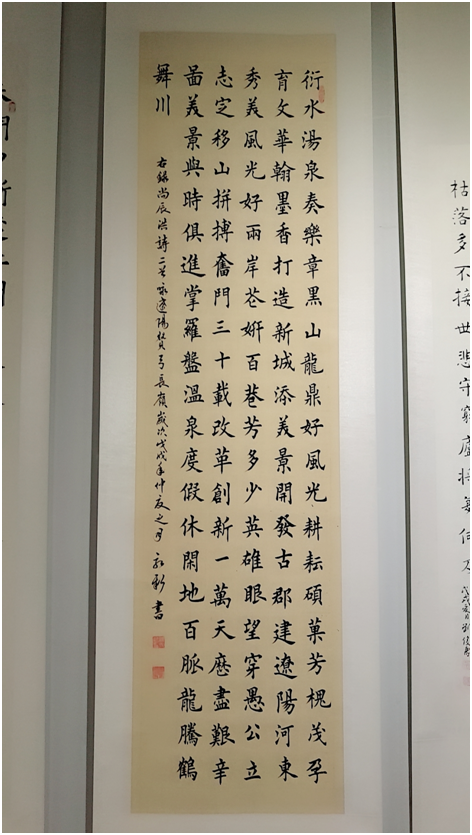 衍水湯泉奏樂章黑山龍鼎好風光耕耘碩菓芳槐茂孕
育文華翰墨香打造新城添美景開發古郡建遼陽河東
秀美風光好兩岸花妍百巷芳多少英雄眼望穿愚公立
志定移山拼搏奮門三十載改革創新一萬天歷盡艱辛
啚美景與時俱進掌羅盤溫泉度假休閑地百脈龍騰鶴
舞川
右錄尚辰洪詩二首咏遼陽弓長嶺歲次戊戌年仲夏之月 新書
枯落多不接世悲守窮廬將復何及